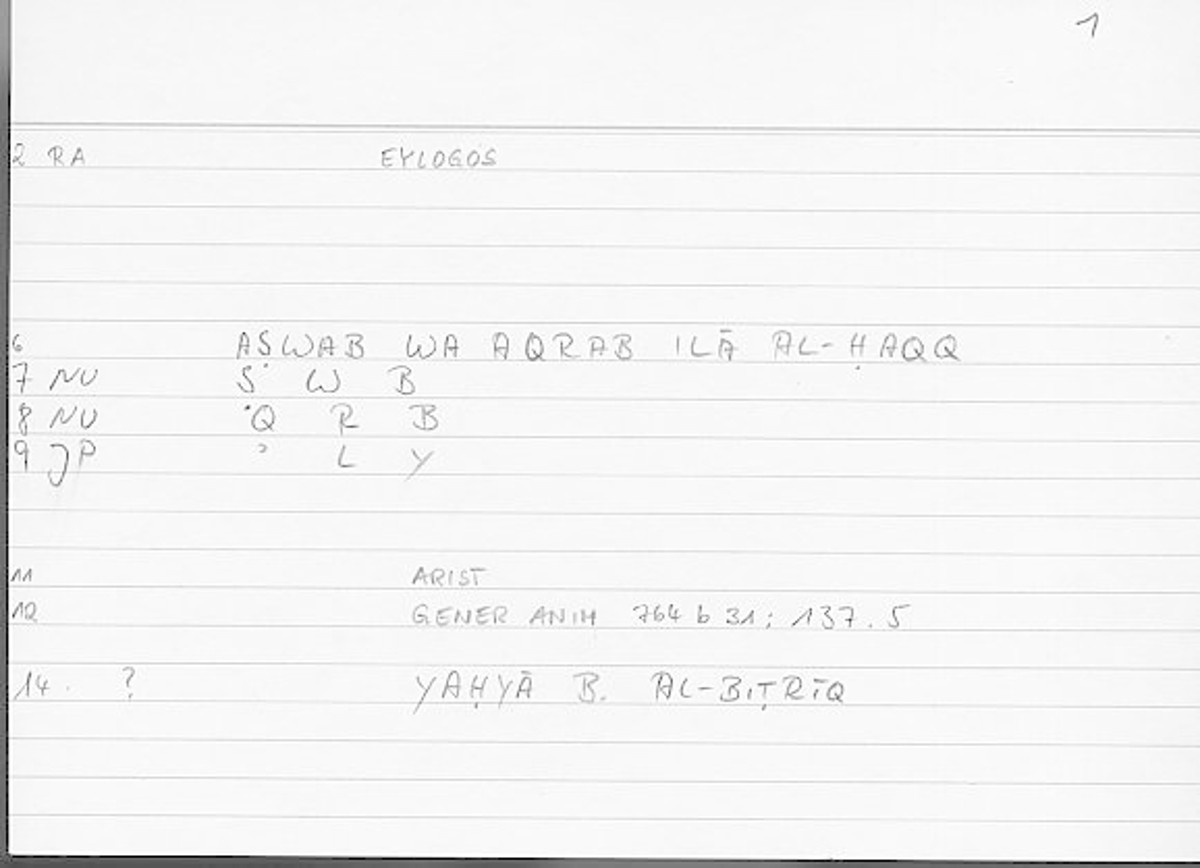 1
2 RA EYLOGOS
6 AṢWAB WA AQRAB ILĀ AL-ḤAQQ
7 NU Ṣ W B
8 NU Q R B
9 JP ʾ L Y
11 ARIST
12 GENER ANIM 764 b 31; 137.5
14. ? YAḤYĀ B. AL-BIṬRĪQ